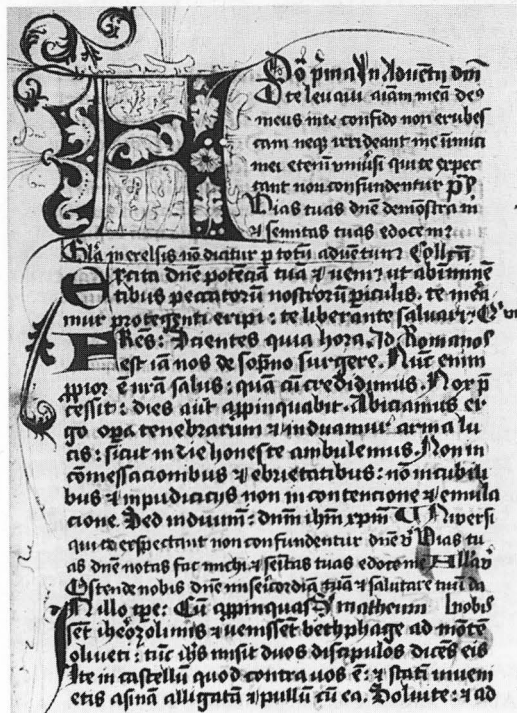 Dō p̄ma In Aduentū dm̄
D te leuaui aīam meā de⁹
meus in te confido non erubes
cam neq; irrideant me inimici
mei etenim vniūsi qui te expec
tant non confundentur p̄s̄
Vias tuas dn̄e demōstra m
⁊ semitas tuas edoce m
Gl̄a in excelsis nō dicitur p totū aduentum Coll̄cta
Excita dn̄e potēciā tuā ⁊ veni ut ab iminē
tibus peccatorū nostrorū piculis. te mea
mur protegenti eripi : te liberante saluari
FRēs : Scientes quia hora. Ad Romanos
est iā nos de sōpno surgere. Nūc enim
ppior ē nrā salus : quā cū credidimus. Nox p̄
cessit : dies aūt appinquabit. Abiciamus er
go opa tenebrarum ⁊ induamur arma lu
cis : sicut in die honeste ambulemus. Non in
cōmessacionibus ⁊ ebrietatibus : nō in cubili
bus ⁊ impudicicijs non in contencione ⁊ emula
cione. Sed induimī : dnm̄ ihm̄ xpm̄ Vniuersi
qui te expectant non confundentur dn̄e v̄ Vias tu
as dn̄e notas fac michi ⁊ semītas tuas edoce me All̄a v̄
Ostende nobis dn̄e misericordiā tuā ⁊ salutare tuū da
IN illo tpe : Cū appinquas S matheum nobis
set iherosolimis ⁊ venisset bethphage ad mōtē
oliueti : tūc ihs misit duos discipulos dicēs eis
Ite in castellū quod contra uos ē : ⁊ statī inueni
etis asinā alligatā ⁊ pullū cū ea. Soluite : ⁊ ad